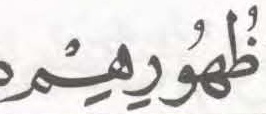 ظُهُورِهِمْ